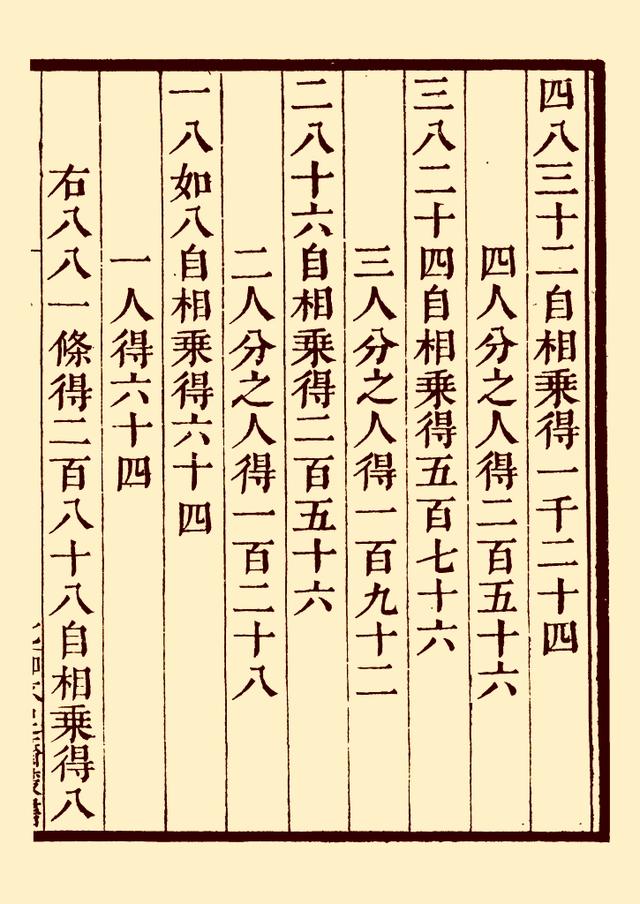 四八三十二自相乘得一千二十四
四人分之人得二百五十六
三八二十四自相乘得五百七十六
三人分之人得一百九十二
二八十六自相乘得二百五十六
二人分之人得一百二十八
一八如八自相乘得六十四
一人得六十四
右八八一條得二百八十八自相乘得八